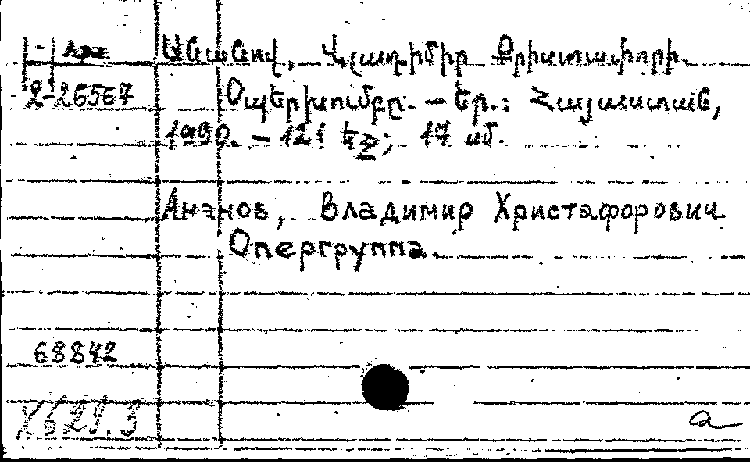 Անանով, Վլադիմիր Քրիստափորի.
2-26567
Օպերխումբը. — Եր.: Հայաստան,
1990. — 121 էջ; 17 սմ.
Ананов, Владимир Христафорович
Опергруппа.
68842
X621.3
a